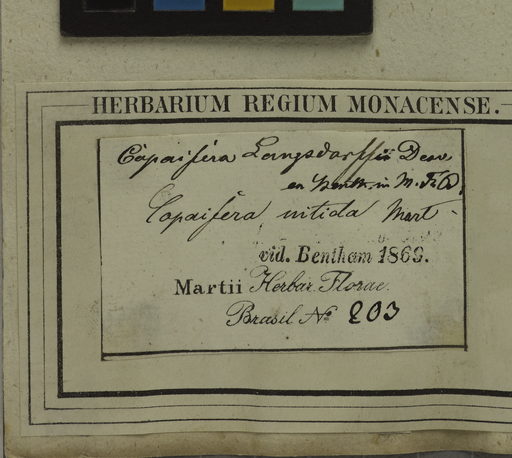 HERBARIUM REGIUM MONACENSE.
Copaifera Langsdorffii Desv
en Benth. in M. Fl B.
Copaifera nitida Mart.
vid. Bentham 1869.
Martii Herbar. Florae.
Brasil No 203